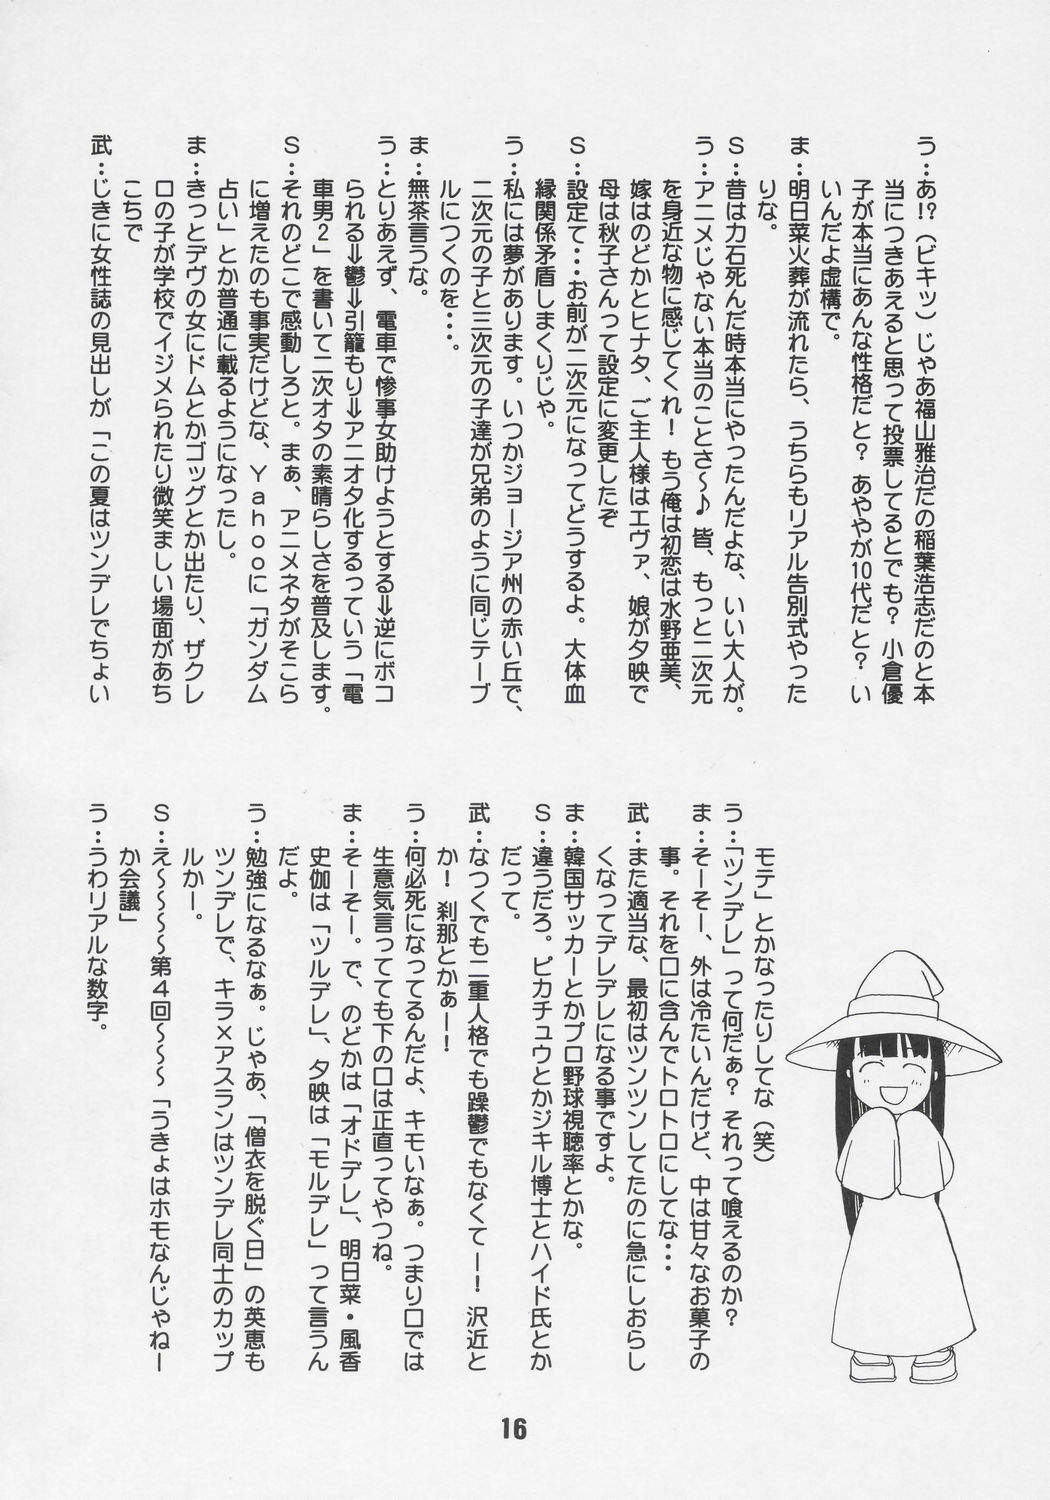 う‥あ!?(ビキッ)じゃあ福山雅治だの稲葉浩志だのと本
当につきあえると思って投票してるとでも?小倉優
子が本当にあんな性格だと?あややが10代だと?い
いんだよ虚構で。
ま‥明日菜火葬が流れたら、うちらもリアル告別式やった
りな。
S‥昔は力石死んだ時本当にやったんだよな、いい大人が。
う‥アニメじゃない本当のことさ〜♪皆、もっと二次元
を身近な物に感じてくれ!もう俺は初恋は水野亜美、
嫁はのどかとヒナタ、ご主人様はエヴァ、娘が夕映で
母は秋子さんって設定に変更したぞ
S‥設定て・・・お前が二次元になってどうするよ。大体血
縁関係矛盾しまくりじゃ。
う‥私には夢があります。いつかジョージア州の赤い丘で、
二次元の子と三次元の子達が兄弟のように同じテーブ
ルにつくのを・・・。
ま‥無茶言うな。
う‥とりあえず、電車で惨事女助けようとする⇒逆にボコ
られる⇒鬱⇒引籠もり⇒アニオタ化するっていう「電
車男2」を書いて二次オタの素晴らしさを普及します。
S‥それのどこで感動しろと。まぁ、アニメネタがそこら
に増えたのも事実だけどな、Yahooに「ガンダム
占い」とか普通に載るようになったし。
ま‥きっとデヴの女にドムとかゴッグとか出たり、ザクレ
ロの子が学校でイジメられたり微笑ましい場面があち
こちで
武‥じきに女性誌の見出しが「この夏はツンデレでちょい
モテ」とかなったりしてな(笑)
う‥「ツンデレ」って何だぁ?それって喰えるのか?
ま‥そーそー、外は冷たいんだけど、中は甘々なお菓子の
事。それを口に含んでトロトロにしてな・・・
武‥また適当な、最初はツンツンしてたのに急にしおらし
くなってデレデレになる事ですよ。
ま‥韓国サッカーとかプロ野球視聴率とかな。
S‥違うだろ。ピカチュウとかジキル博士とハイド氏とか
だって。
武‥なつくでも二重人格でも躁鬱でもなくてー!沢近と
か!刹那とかぁー!
う‥何必死になってるんだよ、キモいなぁ。つまり口では
生意気言っても下の口は正直ってやつね。
ま‥そーそー。で、のどかは「オドデレ」、明日菜・風香
史伽は「ツルデレ」、夕映は「モルデレ」って言うん
だよ。
う‥勉強になるなぁ。じゃあ、「僧衣を脱ぐ日」の英恵も
ツンデレで、キラ×アスランはツンデレ同士のカップ
ルかー。
S‥え〜〜〜〜第4回〜〜〜〜「うきょはホモなんじゃねー
か会議」
う‥うわリアルな数字。
16